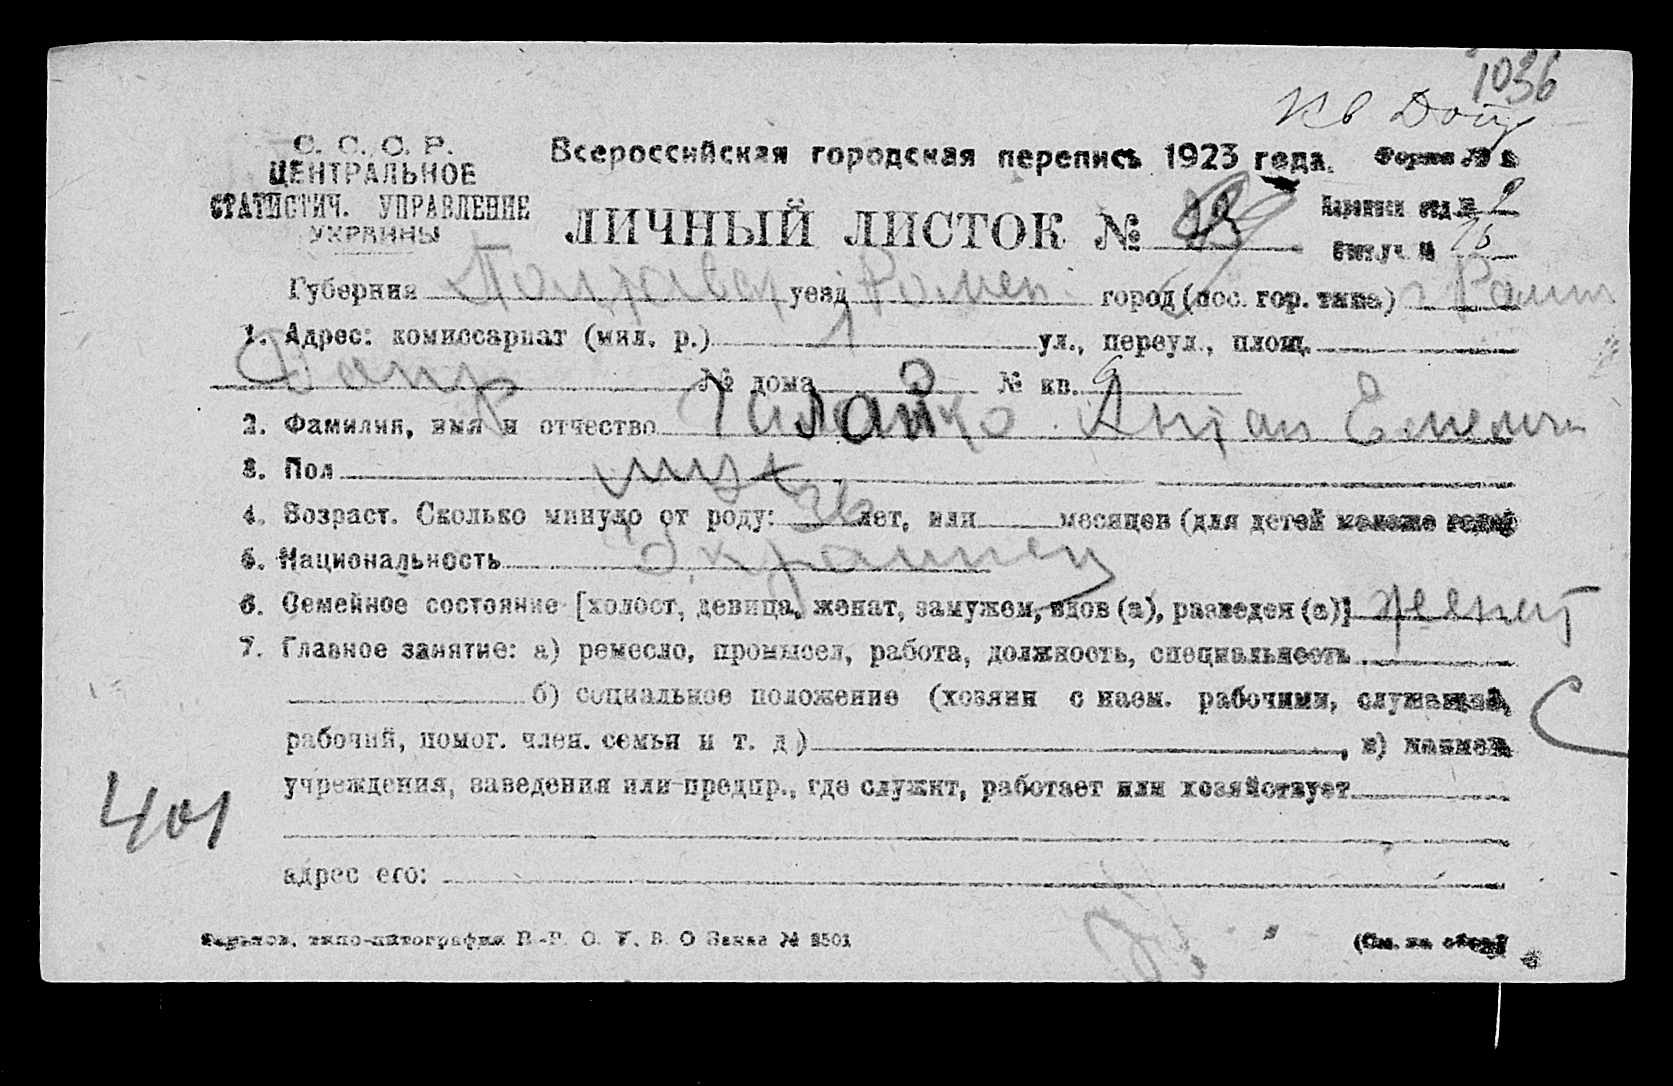 1036
С. С. С. Р.
ЦЕНТРАЛЬНОЕ
СТАТИСТИЧ. УПРАВЛЕНИЕ
УКРАИНЫ
Всероссийская городская перепись 1923 года.
Форма №
ЛИЧНЫЙ ЛИСТОК №
отд. № 9
уч. №
Губерния Полтавск уезд Ромен город (пос. гор. типа)
1. Адрес: комиссариат (мил. р.) 1 ул., переул., площ.
Допр № дома № кв.
2. Фамилия, имя и отчество Галайко Антан Емельян
3. Пол муж
4. Возраст. Сколько минуло от роду: 36 лет, или месяцев (для детей моложе года)
5. Национальность Украинец
6. Семейное состояние [холост, девица, женат, замужем, вдов (а), разведен (а)] женат
7. Главное занятие: а) ремесло, промысел, работа, должность, специальность
б) социальное положение (хозяин с наем. рабочими, служащий,
рабочий, помог. член. семьи и т. д.) , в) наимен
учреждения, заведения или предпр., где служит, работает или хозяйствует
401
адрес его:
Харьков, типо-литография В. О Заказ № 2501
(См. на обор.)